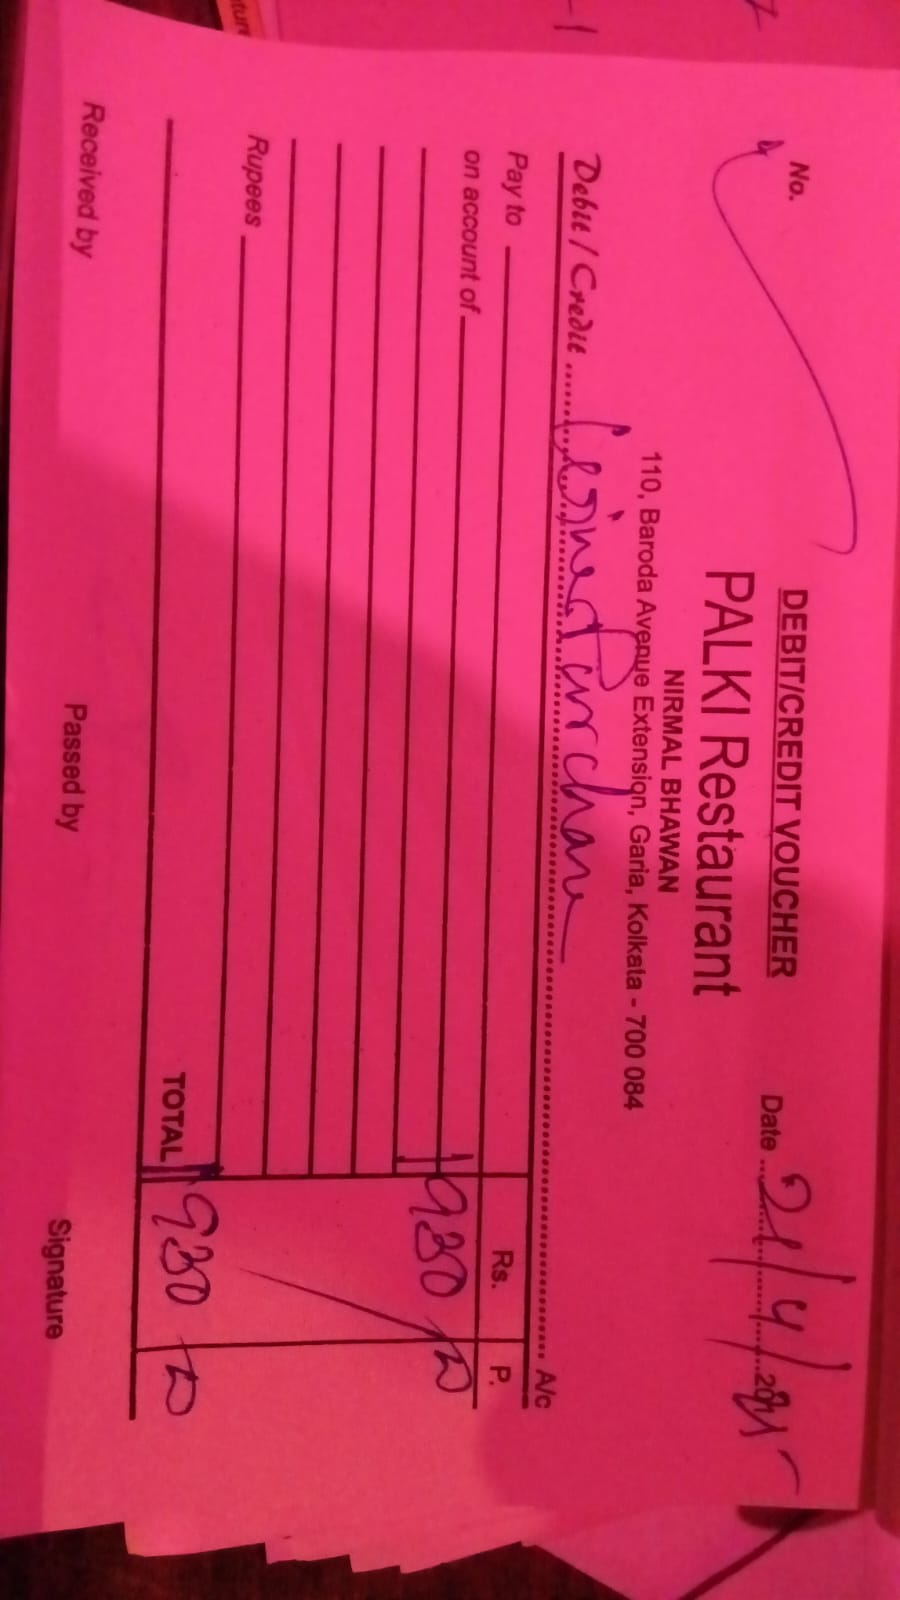 No.
DEBIT/CREDIT VOUCHER
Date 21/4/2025
PALKI Restaurant
NIRMAL BHAWAN
110, Baroda Avenue Extension, Garia, Kolkata - 700 084
Debit / Credit A/c
Pay to Rs. P.
on account of 930
Rupees
TOTAL 930
Received by Passed by Signature